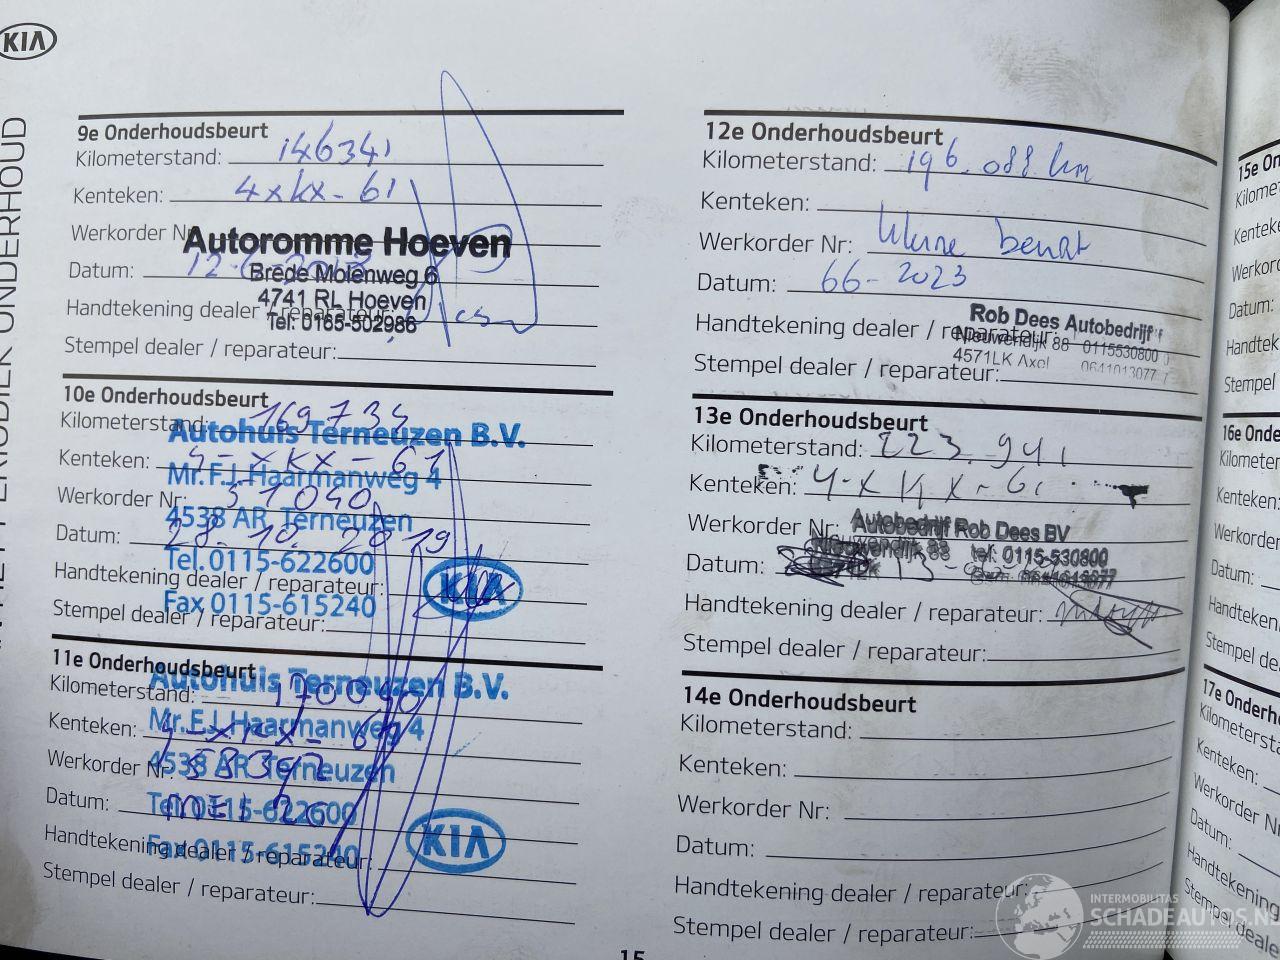 KIA
9e Onderhoudsbeurt
Kilometerstand: 146341
Kenteken: 4xkx-61
Werkorder Nr
Autoromme Hoeven
Datum: 12-6-
Brede Molenweg 6
4741 RL Hoeven
Handtekening dealer / reparateur:
Tel: 0165-502986
Stempel dealer / reparateur:
10e Onderhoudsbeurt
Kilometerstand: 169734
Autohuis Terneuzen B.V.
Kenteken: 4-xkx-61
Mr. F.J. Haarmanweg 4
Werkorder Nr: 51040
4538 AR Terneuzen
Datum: 28-10-2019
Tel. 0115-622600
Handtekening dealer / reparateur:
KIA
Fax 0115-615240
Stempel dealer / reparateur:
11e Onderhoudsbeurt
Autohuis Terneuzen B.V.
Kilometerstand: 170040
Kenteken: 4-xkx-61
Mr. F.J. Haarmanweg 4
Werkorder Nr:
4538 AR Terneuzen
Datum: mei 20
Tel. 0115-622600
Handtekening dealer / reparateur:
KIA
Fax 0115-615240
Stempel dealer / reparateur:
12e Onderhoudsbeurt
Kilometerstand: 196.088 km
Kenteken:
Werkorder Nr: kleine beurt
Datum: 66-2023
Rob Dees Autobedrijf
Handtekening dealer / reparateur:
Nieuwendijk 88 0115530800
4571LK Axel 0641013077
Stempel dealer / reparateur:
13e Onderhoudsbeurt
Kilometerstand: 223.941
Kenteken: 4-xkx-61
Werkorder Nr:
Autobedrijf Rob Dees BV
Nieuwendijk 88 tel: 0115-530800
Datum: 13-
Handtekening dealer / reparateur:
Stempel dealer / reparateur:
14e Onderhoudsbeurt
Kilometerstand:
Kenteken:
Werkorder Nr:
Datum:
Handtekening dealer / reparateur:
Stempel dealer / reparateur:
15
15e On
Kilome
Kenteke
Werkor
Datum:
Handtek
Stempel
16e Onde
Kilometer
Kenteken:
Werkorder
Datum:
Handteken
Stempel de
17e Onderh
Kilometersta
Kenteken:
Werkorder N
Datum:
Handtekening
Stempel deale
INTERMOBILITAS
SCHADEAUTOS.NL